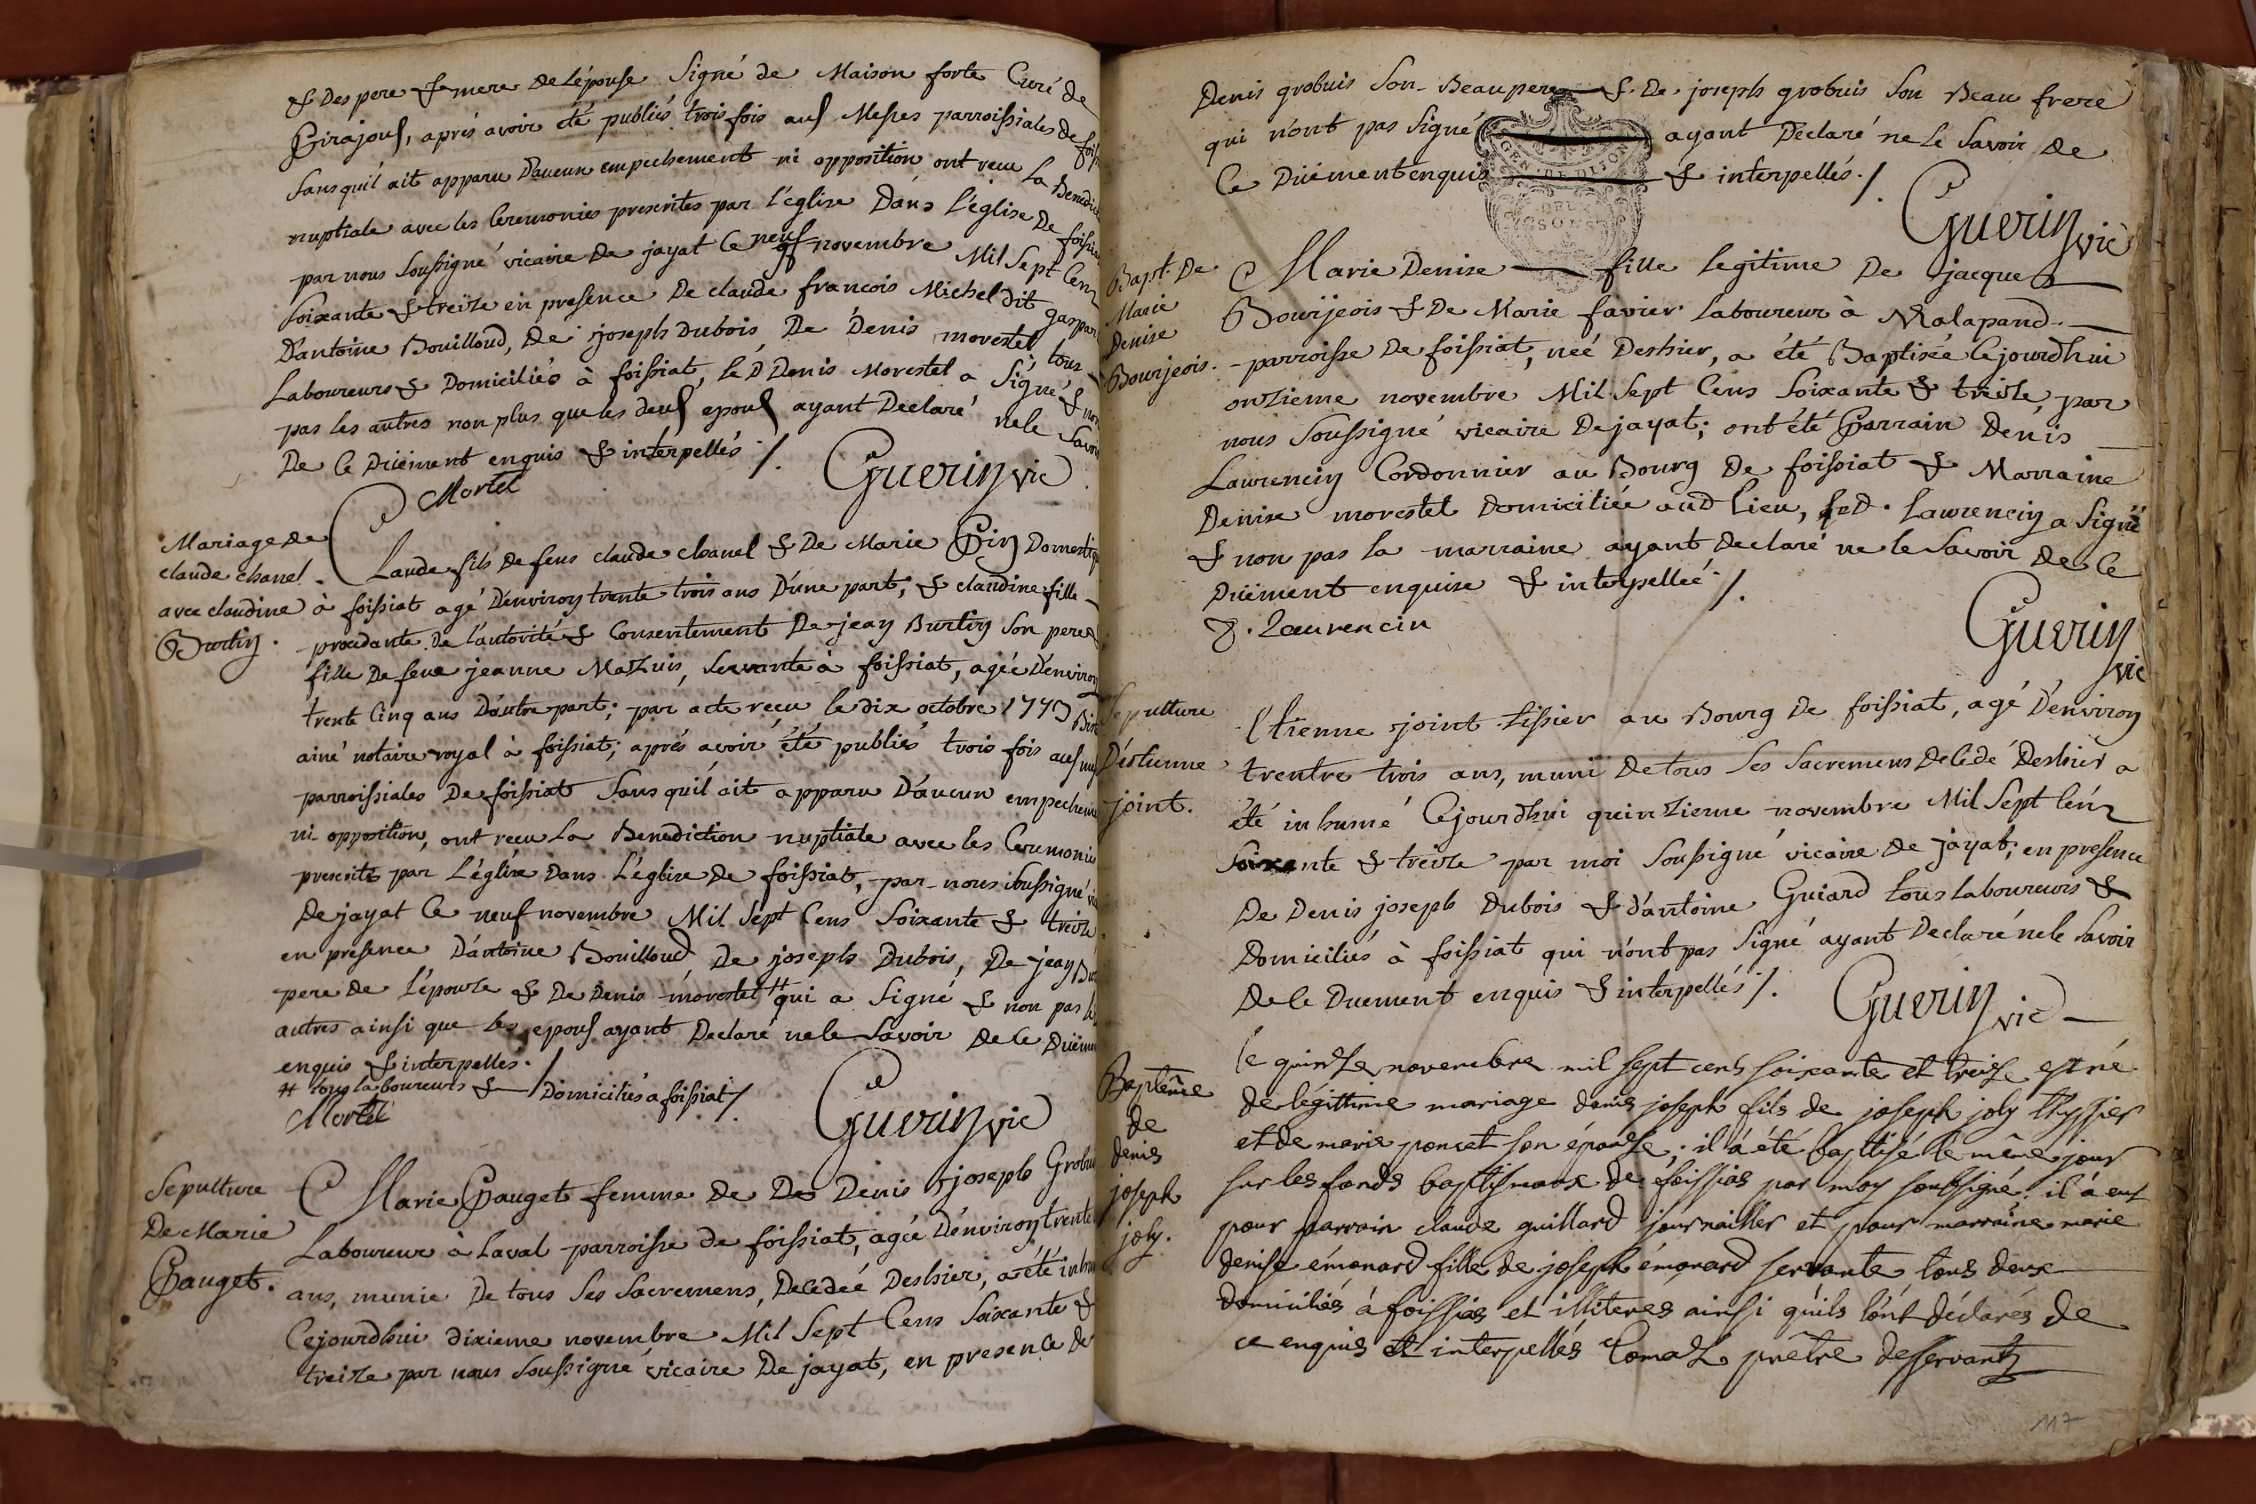 & Des pere & mere De L'épouse Signé de Maison forte Curé de
Pirajoux, aprés avoir été publiés trois fois aux Messes parroissiales de
Sans quil ait apparu D'aucun empechement ni opposition ont recu La
nuptiale avec les Ceremonies prescrites par L'église Dans L'église De
par nous Soussigné vicaire De jayat le neuf novembre Mil Sept Cens
Soixante & treize en presence De claude francois Michel dit
D'antoine Bouilloud, De joseph Dubois De Denis morestel tous
Laboureurs & Domiciliés à foissiat, le D Denis Morestel a Signé & non
pas les autres non plus que les deux epoux ayant Declaré ne le Savoir
De Ce Düement enquis & interpellés ./.
Mortel
Guerin vic
Mariage de
claude chanel
avec claudine
Burtin.
Claude fils De feus claude chanel & De Marie Pin Domestique
à foissiat agé D'environ trente trois ans D'une part; & claudine fille
procedante De l'autorité & Consentement De jean Burtin Son pere &
fille De feue jeanne Mazuis, Servante à foissiat, agée D'environ
trente Cinq ans D'autre part; par acte recu le dix octobre 1773
ainé notaire royal à foissiat; aprés avoir été publiés trois fois aux
parroissiales De foissiat Sans quil ait apparu D'aucun empechement
ni opposition, ont recu La Benediction nuptiale avec les Ceremonies
prescrites par L'église Dans L'église De foissiat, par nous soussigné
De jayat le neuf novembre Mil Sept Cens Soixante & treize
en presence D'antoine Bouilloud De joseph Dubois, De jean
pere De L'épouse & De Denis morestel # qui a Signé & non pas les
autres ainsi que les epoux ayant Declaré ne le Savoir De Ce Düement
enquis & interpellés.
# tous laboureurs & Domiciliés a foissiat /.
Mortel
Guerin vic
Sepulture
De Marie
Pauget.
Marie Pauget femme De De Denis joseph
Laboureur à Laval parroisse De foissiat, agée D'environ trente
ans, munie De tous Ses Sacremens, Decedée Deshier, a été
Cejourdhui dixieme novembre Mil Sept Cens Soixante &
treize par nous Soussigné vicaire De jayat, en presence de
Denis grobuis Son Beau pere & De joseph grobuis Son Beau frere
qui n'ont pas Signé ayant Déclaré ne le Savoir De
Ce Düement enquis & interpellés ./.
Guerin vic
Bapt. De
Marie
Denise
Bourjeois.
Marie Denise fille legitime De jacque
Bourjeois & De Marie favier Laboureur à Malapand
parroisse De foissiat, née Deshier, a été Baptisée Cejourdhui
onzieme novembre Mil Sept Cens Soixante & treize, par
nous Soussigné vicaire De jayat; ont été Parrain Denis
Laurencin Cordonnier au Bourg De foissiat & Marraine
Denise morestel Domiciliée aud Lieu, led. Laurencin a Signé
& non pas la marraine ayant declaré ne le Savoir De Ce
Düement enquise & interpellée ./.
D. Laurencin
Guerin
vic
Sepulture
D'estienne
joint.
Etienne joint tissier au Bourg De foissiat, agé D'environ
trentre trois ans, muni De tous Ses Sacremens Decedé Deshier a
été inhumé Cejourdhui quinzieme novembre Mil Sept Cens
Soixante & treize par moi Soussigné vicaire De jayat; en presence
De Denis joseph Dubois & d'antoine Guiard tous laboureurs &
Domiciliés à foissiat qui n'ont pas Signé ayant Declaré ne le Savoir
De Ce Duement enquis & interpellés /.
Guerin vic
Baptême
de
denis
joseph
joly.
le quinze novembre mil sept cents soixante et treize est né
de légittime mariage denis joseph fils de joseph joly thyssier
et de marie poncet son épouse; il à été baptisé le même jour
sur les fonds baptismaux de foissias par moy soubsigné. il à eut
pour parrain claude guillard journailler et pour marraine marie
denise émonard fille de joseph émonard servante tous deux
domiciliés à foissias et illiteres ainsi qu'ils l'ont déclarés de
ce enquis et interpellés Comas prêtre desservant
117